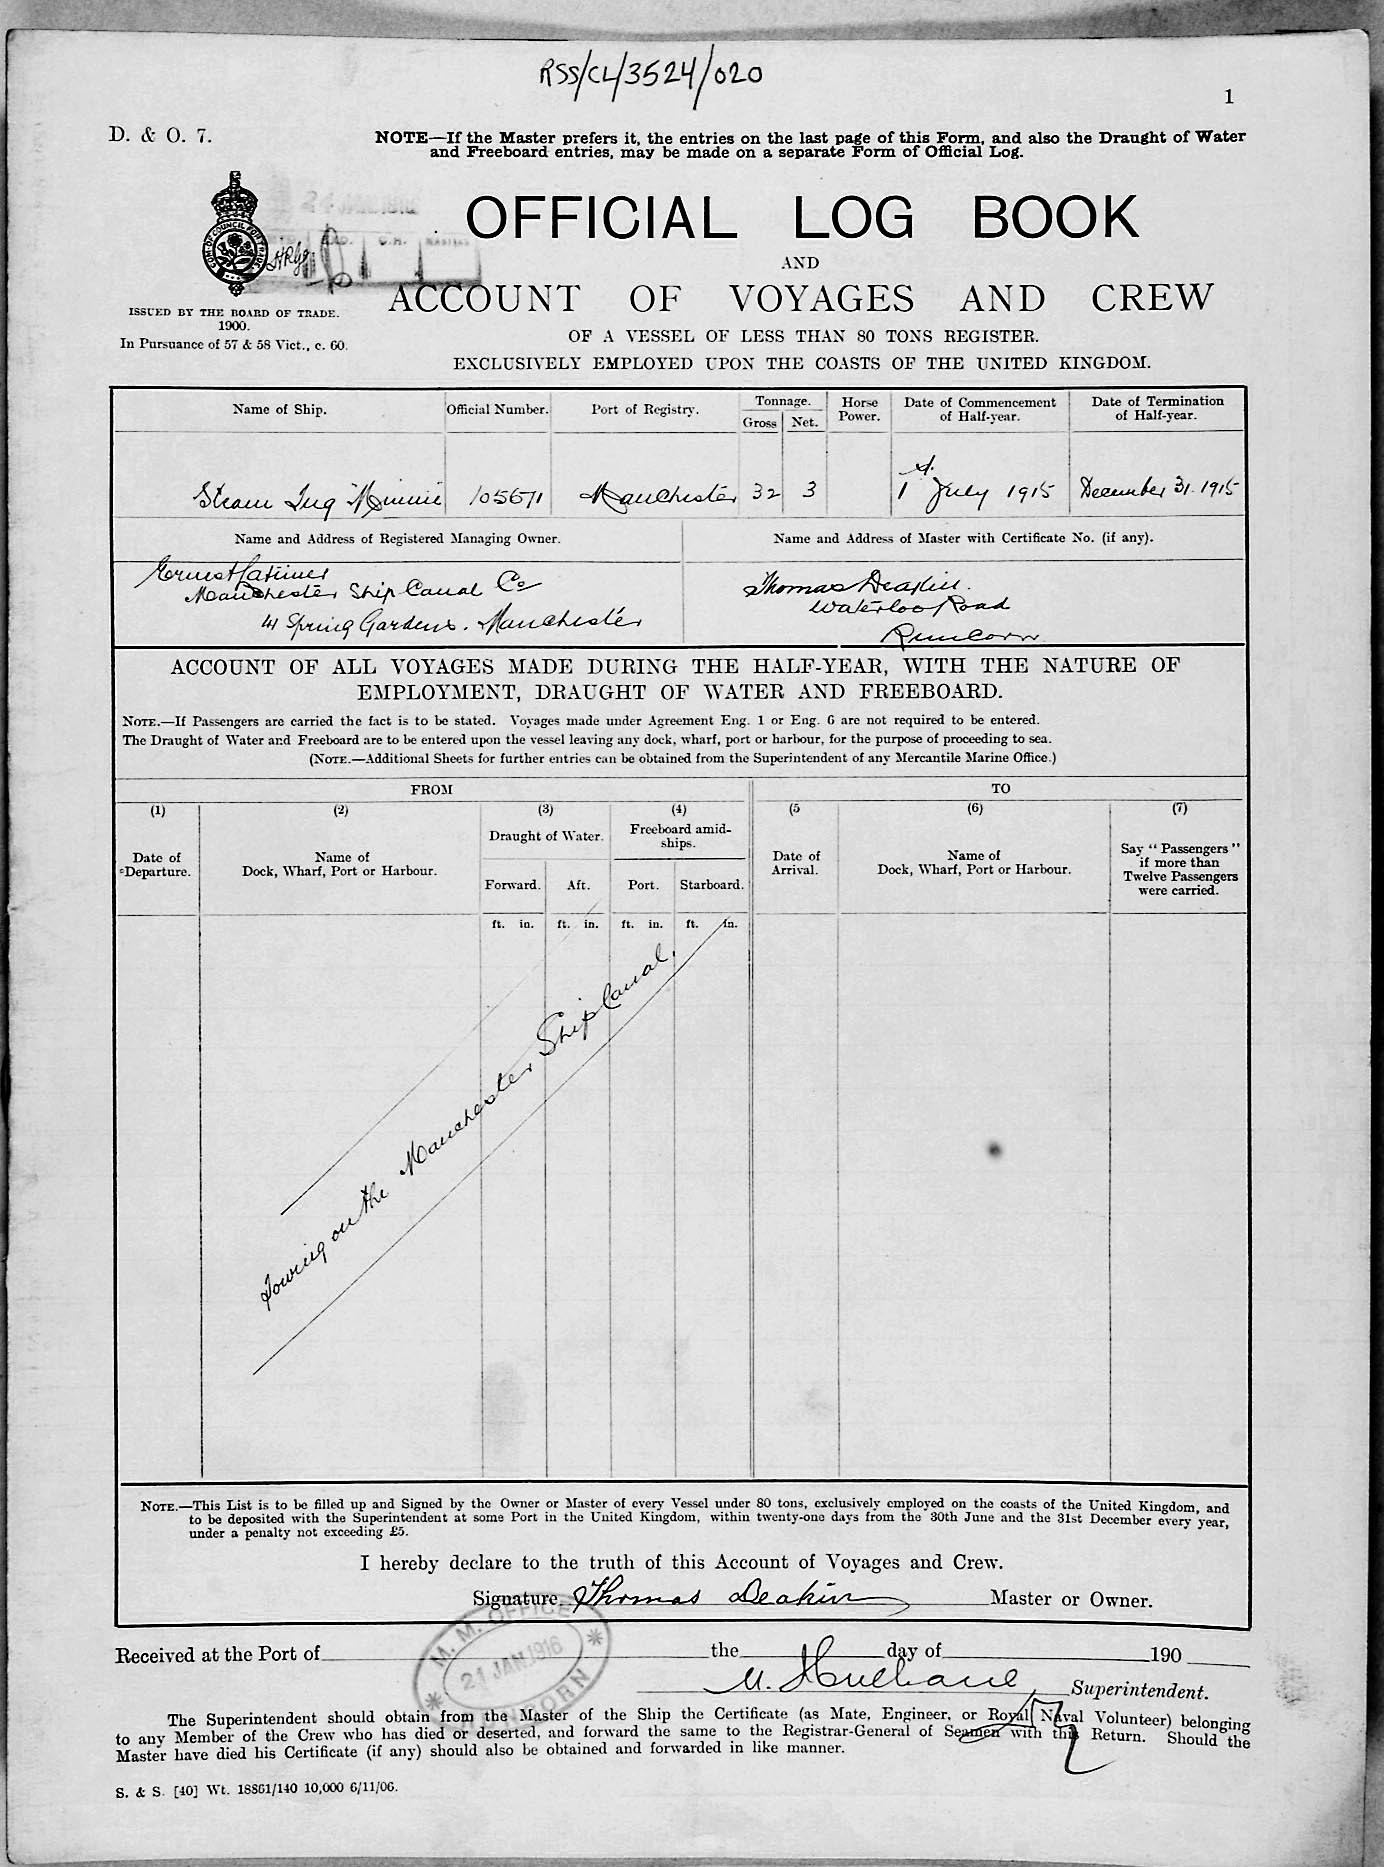 RSS/CL/3524/020
1
D. & O. 7.
NOTE—If the Master prefers it, the entries on the last page of this Form, and also the Draught of Water
and Freeboard entries, may be made on a separate Form of Official Log.
OFFICIAL LOG BOOK
AND
ACCOUNT OF VOYAGES AND CREW
ISSUED BY THE BOARD OF TRADE.
1900.
In Pursuance of 57 & 58 Vict., c. 60.
OF A VESSEL OF LESS THAN 80 TONS REGISTER.
EXCLUSIVELY EMPLOYED UPON THE COASTS OF THE UNITED KINGDOM.
Name of Ship. Official Number. Port of Registry. Tonnage. Gross Net. Horse Power. Date of Commencement of Half-year. Date of Termination of Half-year.
Steam Tug "Minnie 105671 Manchester 32 3 1st July 1915 December 31. 1915
Name and Address of Registered Managing Owner. Name and Address of Master with Certificate No. (if any).
Ernest Latimer
Manchester Ship Canal Co
41 Spring Gardens. Manchester
Thomas Deakin.
Waterloo Road
Runcorn
ACCOUNT OF ALL VOYAGES MADE DURING THE HALF-YEAR, WITH THE NATURE OF
EMPLOYMENT, DRAUGHT OF WATER AND FREEBOARD.
NOTE.—If Passengers are carried the fact is to be stated. Voyages made under Agreement Eng. 1 or Eng. 6 are not required to be entered.
The Draught of Water and Freeboard are to be entered upon the vessel leaving any dock, wharf, port or harbour, for the purpose of proceeding to sea.
(NOTE.—Additional Sheets for further entries can be obtained from the Superintendent of any Mercantile Marine Office.)
FROM TO
(1) (2) (3) (4) (5 (6) (7)
Date of Departure. Name of Dock, Wharf, Port or Harbour. Draught of Water. Freeboard amid-ships. Date of Arrival. Name of Dock, Wharf, Port or Harbour. Say "Passengers" if more than Twelve Passengers were carried.
Forward. Aft. Port. Starboard.
ft. in. ft. in. ft. in. ft. in.
Towing on the Manchester Ship Canal.
NOTE.—This List is to be filled up and Signed by the Owner or Master of every Vessel under 80 tons, exclusively employed on the coasts of the United Kingdom, and
to be deposited with the Superintendent at some Port in the United Kingdom, within twenty-one days from the 30th June and the 31st December every year,
under a penalty not exceeding £5.
I hereby declare to the truth of this Account of Voyages and Crew.
Signature Thomas Deakin Master or Owner.
M. M. OFFICE
21 JAN 1916
RUNCORN
Received at the Port of the day of 190
M. Superintendent.
The Superintendent should obtain from the Master of the Ship the Certificate (as Mate, Engineer, or Royal Naval Volunteer) belonging
to any Member of the Crew who has died or deserted, and forward the same to the Registrar-General of Seamen with this Return. Should the
Master have died his Certificate (if any) should also be obtained and forwarded in like manner.
S. & S. [40] Wt. 18861/140 10,000 6/11/06.